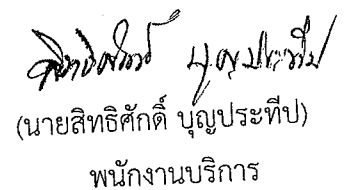 สิทธิศักดิ์ บุญประทีป
(นายสิทธิศักดิ์ บุญประทีป)
พนักงานบริการ